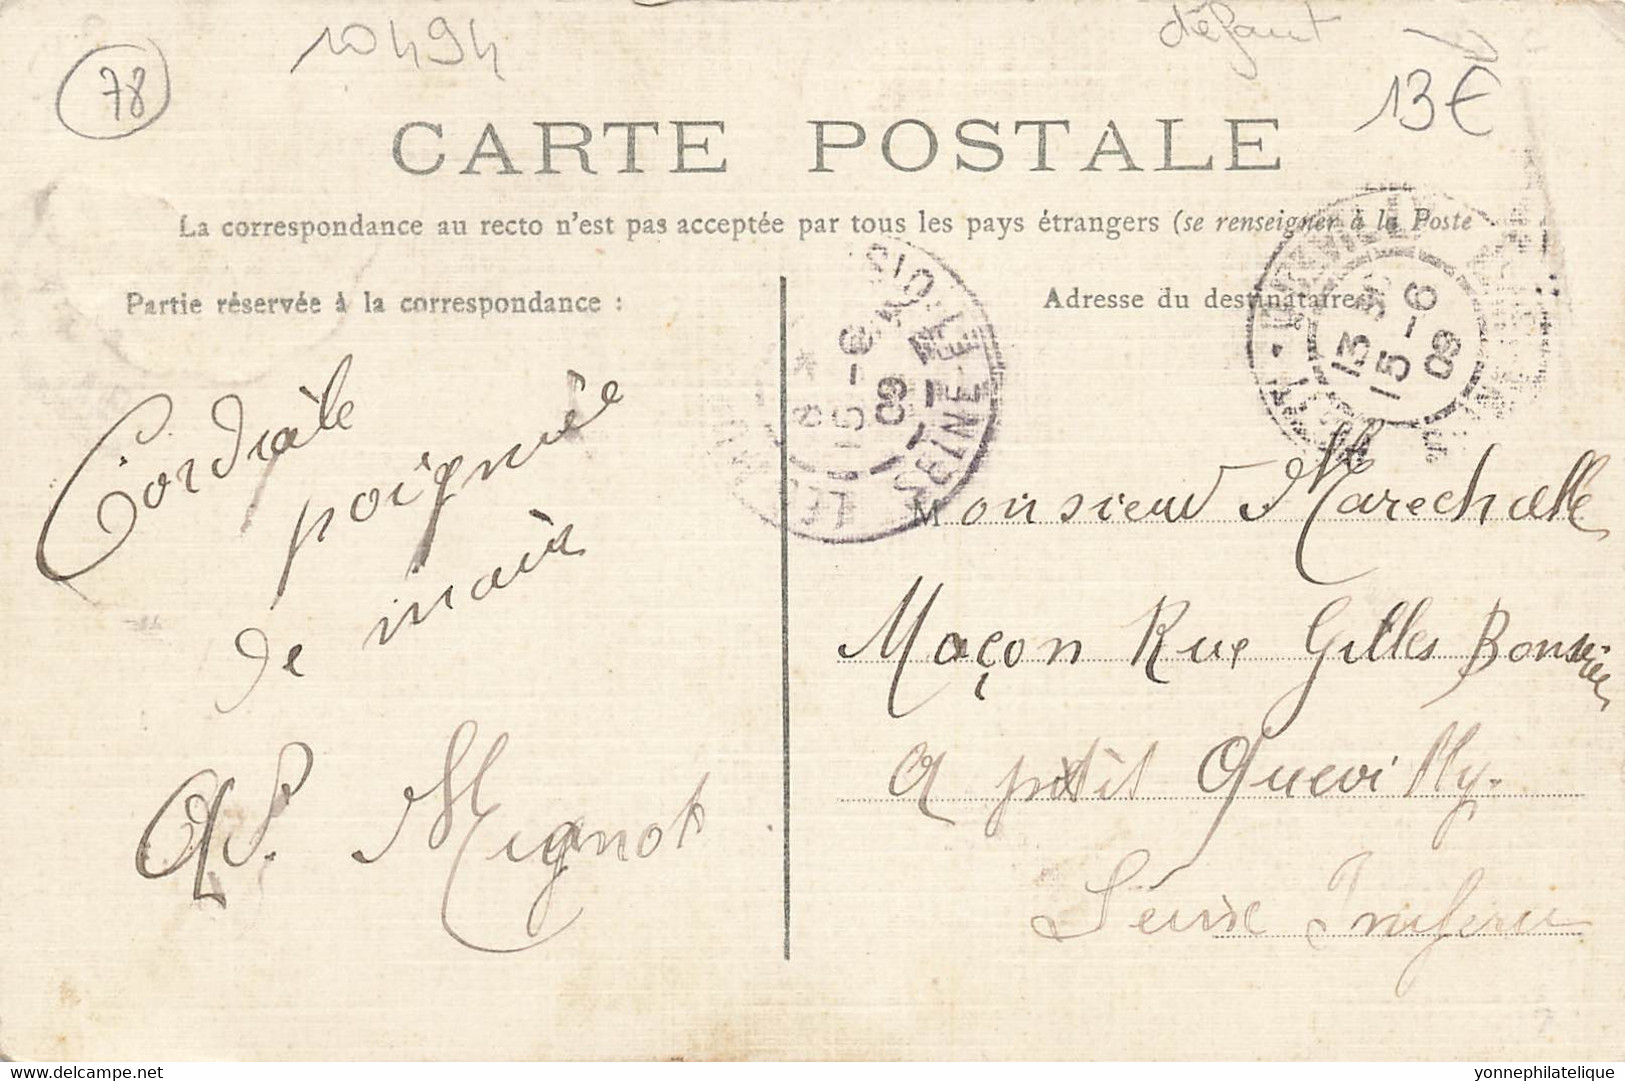 10494
défaut
78
13€
CARTE POSTALE
La correspondance au recto n'est pas acceptée par tous les pays étrangers (se renseigner à la Poste
Partie réservée à la correspondance :
Cordiale
poignée
de main
Mignot
Adresse du destinataire
13
15-6
09
8
15-6
09
SEINE-
Monsieur Marechalle
Maçon Rue Gilles
a petit Quevilly.
Seine Inferieu
delcampe.net
yonnephilatelique